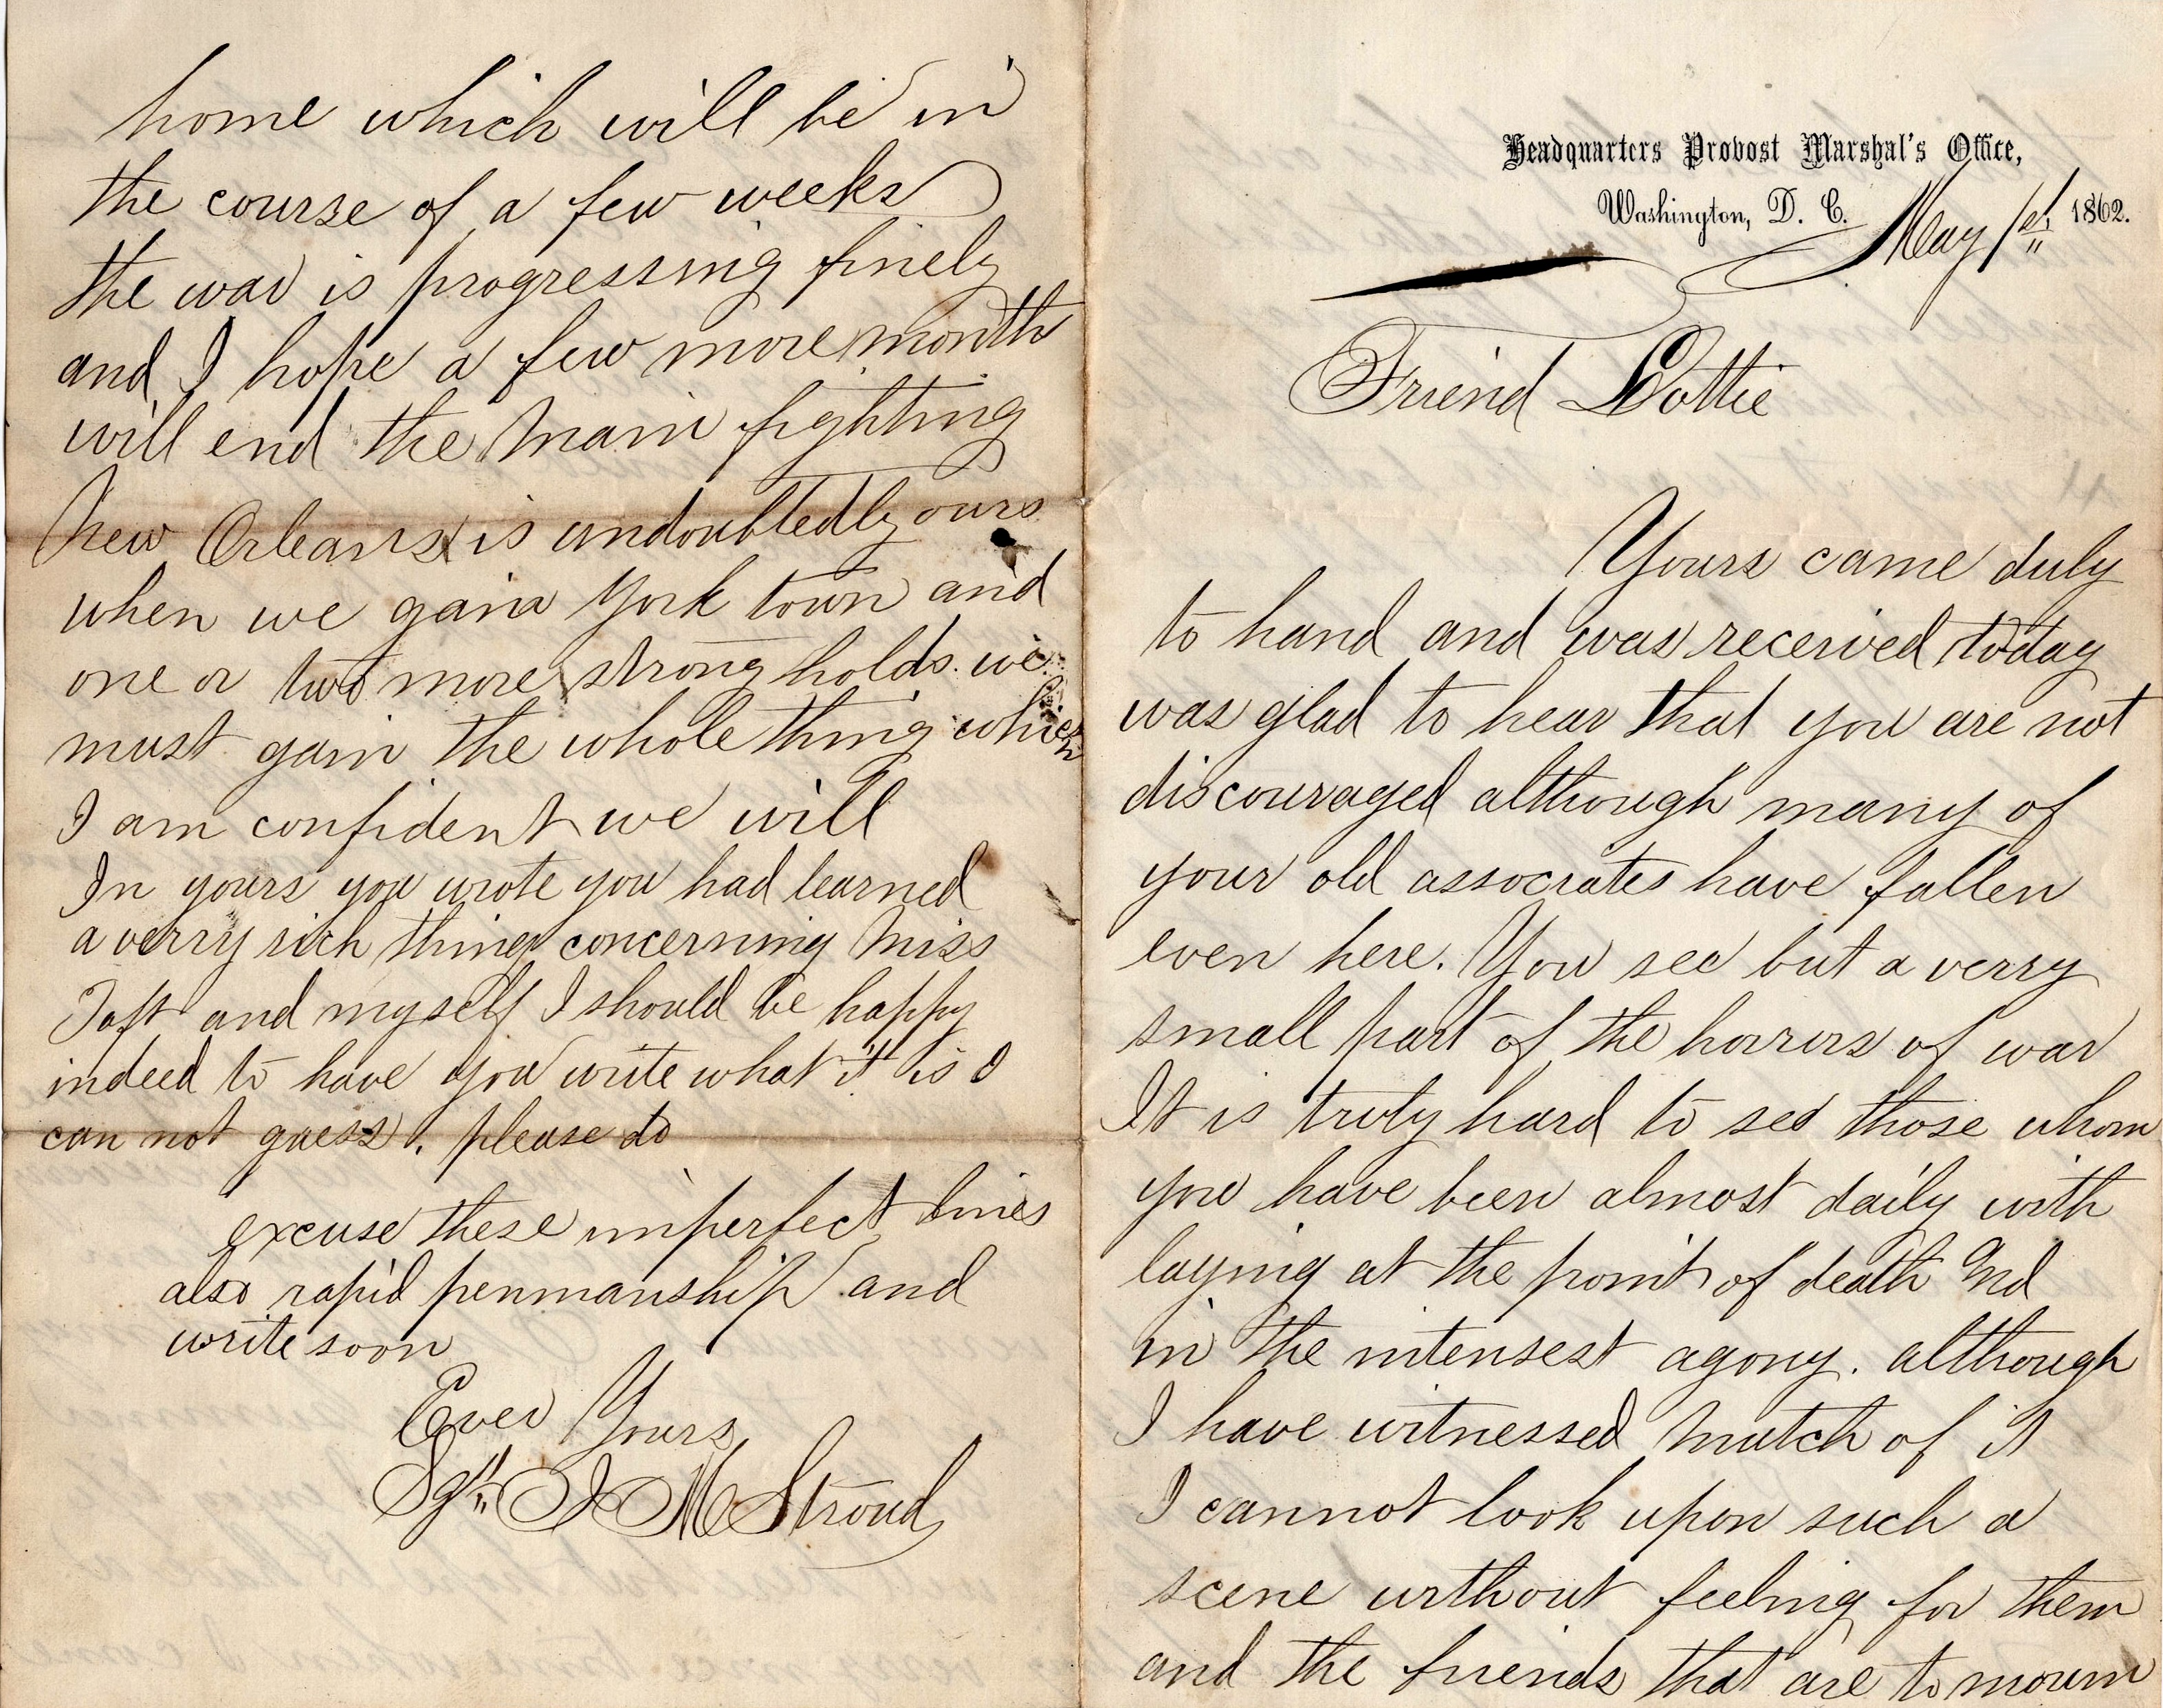 Headquarters Provost Marshal's Office,
Washington, D. C. May 1st 1862.
Friend Lottie
Yours came duly
to hand and was received today
was glad to hear that you are not
discouraged although many of
your old assocrates have fallen
even here. You see but a verry
small part of the horrors of war
It is truly hard to see those whom
you have been almost daily with
laying at the point of death And
in the intensest agony. although
I have witnessed mutch of it
I cannot look upon such a
scene without feeling for them
and the friends that are to mourn
home which will be in
the course of a few weeks
the war is progressing finely
and I hope a few more month
will end the main fighting
New Orleans is undoubtedly ours
when we gain York town and
one or two more strong holds. we
must gain the whole thing which
I am confident we will
In yours you wrote you had learned
a verry rich thing concerning Miss
Taft and myself I should be happy
indeed to have you write what it is I
can not guess. please do
excuse these imperfect lines
also rapid penmanship and
write soon
Ever Yours
Sgt. J M Stroud